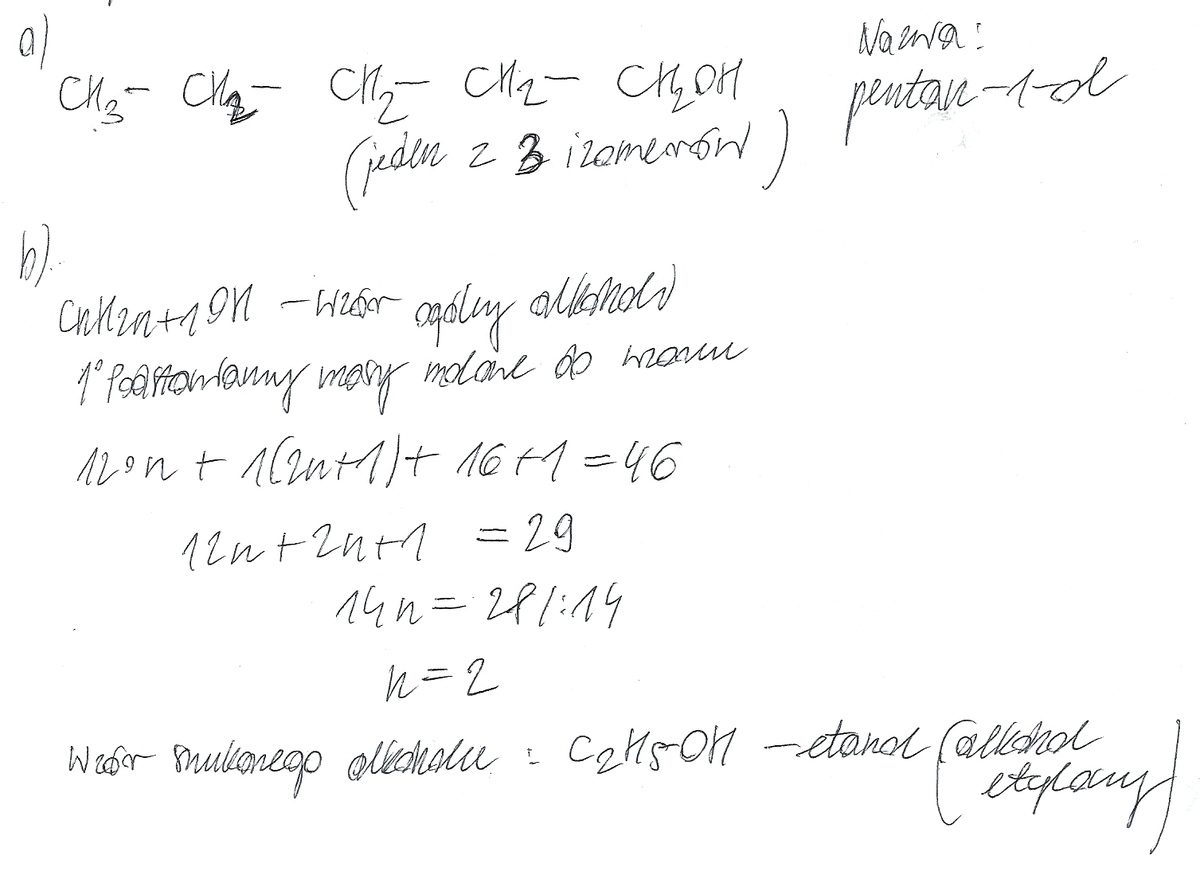 a)
CH₃- CH₂- CH₂- CH₂- CH₂OH
(jeden z 3 izomerów)
Nazwa:
pentan-1-ol
b).
CnH2n+1OH - wzór ogólny alkoholi
1° Podstawiamy masy molowe do wzoru
12•n + 1(2n+1)+ 16+1 = 46
12n+2n+1 = 29
14n = 28/:14
n = 2
Wzór szukanego alkoholu : C₂H₅-OH - etanol (alkohol
etylowy)